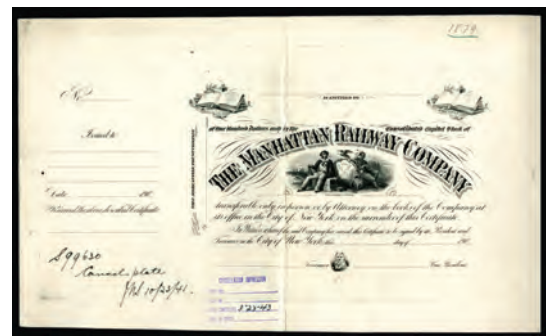 1879.
No.
Issued to
Date 190
is entitled to
of One Hundred Dollars each in the Consolidated Capital Stock of
THE MANHATTAN RAILWAY COMPANY
transferable only in person or by Attorney on the books of the Company at
its office in the City of New York on the surrender of this Certificate.
In Witness whereof the said Company has caused this Certificate to be signed by its President and
Treasurer in the City of New York, this day of 190
S99630
Cancel plate
10/23/41.
3-23-43